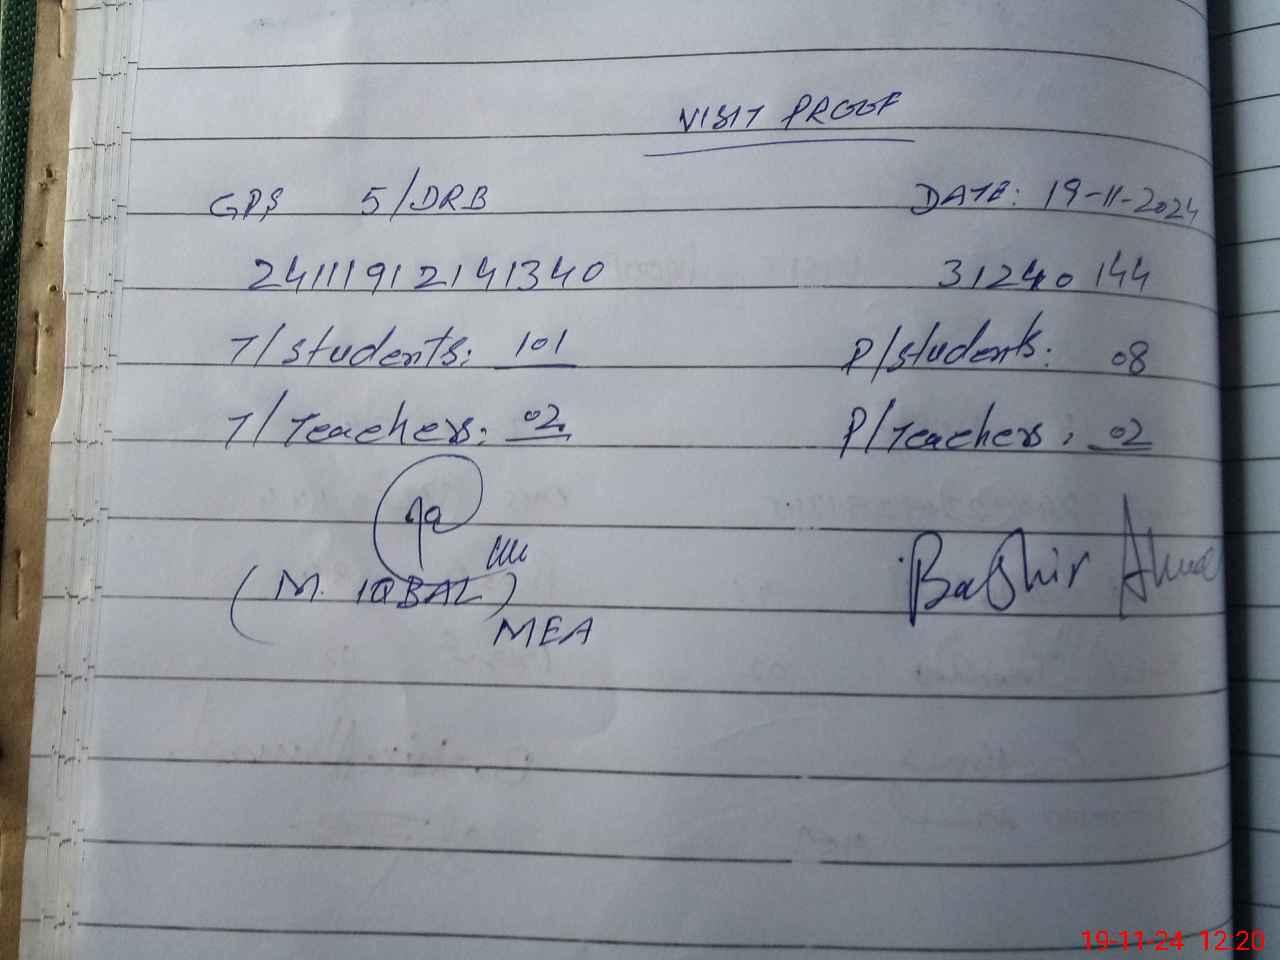 VISIT PROOF
GPS 5/DRB DATE: 19-11-2024
24111912141340 31240144
T/Students: 101 P/Students: 08
T/Teachers: 02 P/Teachers: 02
(M. IQBAL) Bashir Ahmad
MEA
19-11-24 12:20